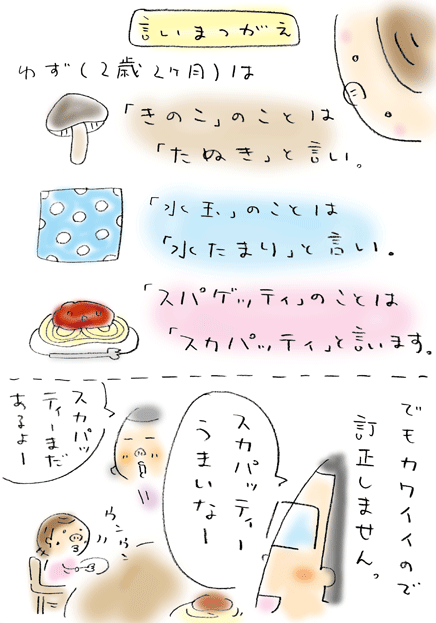 言いまつがえ
ゆず(2歳2ヶ月)は
「きのこ」のことは
「たぬき」と言い。
「水玉」のことは
「水たまり」と言い。
「スパゲッティ」のことは
「スカパッティ」と言います。
でもカワイイので
訂正しません。
スカパッティー
うまいなー
スカパッ
ティーまだ
あるよー
ウンウン